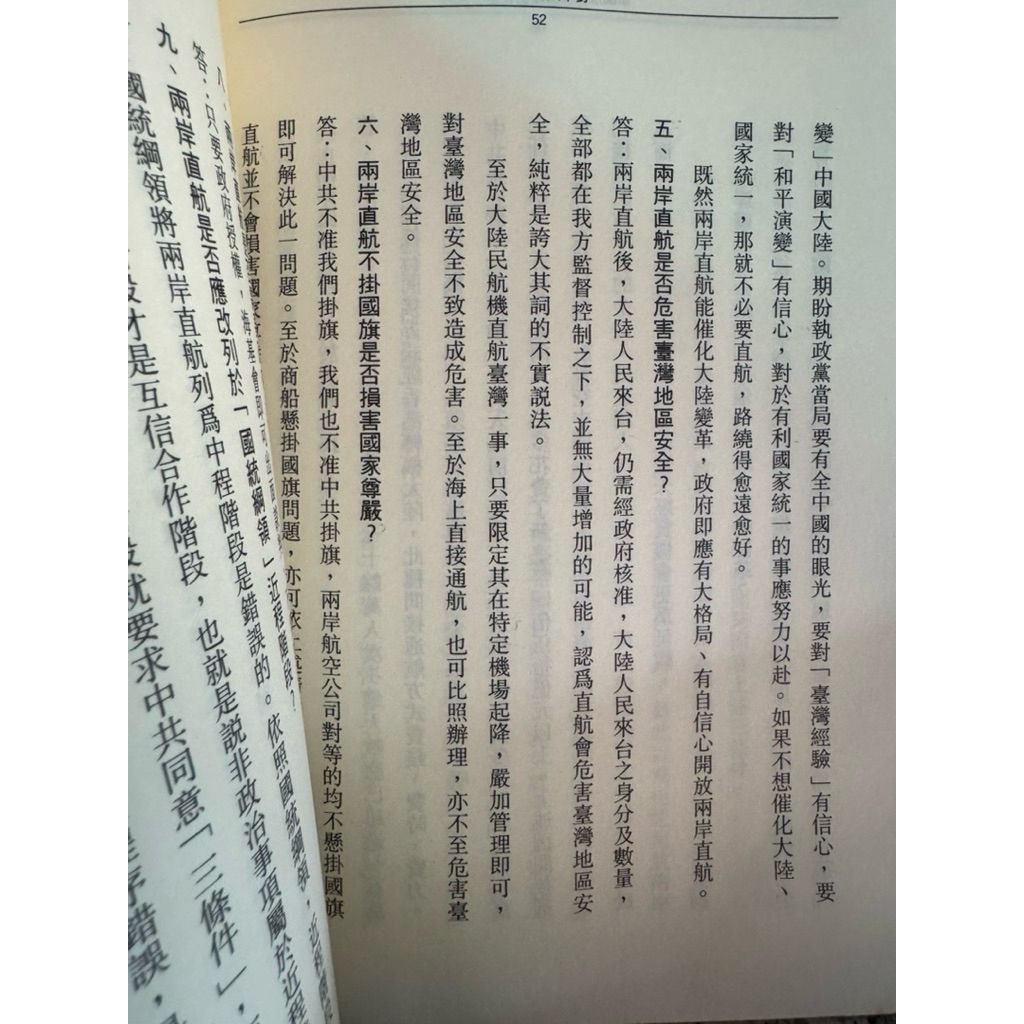 52
變」中國大陸。期盼執政黨當局要有全中國的眼光，要對「臺灣經驗」有信心，要
對「和平演變」有信心，對於有利國家統一的事應努力以赴。如果不想催化大陸、
國家統一，那就不必要直航，路繞得愈遠愈好。
既然兩岸直航能催化大陸變革，政府即應有大格局、有自信心開放兩岸直航。
五、兩岸直航是否危害臺灣地區安全？
答：兩岸直航後，大陸人民來台，仍需經政府核准，大陸人民來台之身分及數量，
全部都在我方監督控制之下，並無大量增加的可能，認爲直航會危害臺灣地區安
全，純粹是誇大其詞的不實説法。
至於大陸民航機直航臺灣一事，只要限定其在特定機場起降，嚴加管理即可，
對臺灣地區安全不致造成危害。至於海上直接通航，也可比照辦理，亦不至危害臺
灣地區安全。
六、兩岸直航不掛國旗是否損害國家尊嚴？
答：中共不准我們掛旗，我們也不准中共掛旗，兩岸航空公司對等的均不懸掛國旗
即可解決此一問題。至於商船懸掛國旗問題，亦可依
直航並不會損害國家
答：只要政府授權，海基會即可
九、兩岸直航是否應改列於「國統綱領」近程階段？
國統綱領將兩岸直航列爲中程階段是錯誤的。依照國統綱領，近程
才是互信合作階段，也就是説非政治事項屬於近程
就要求中共同意「三條件」，
序錯誤，